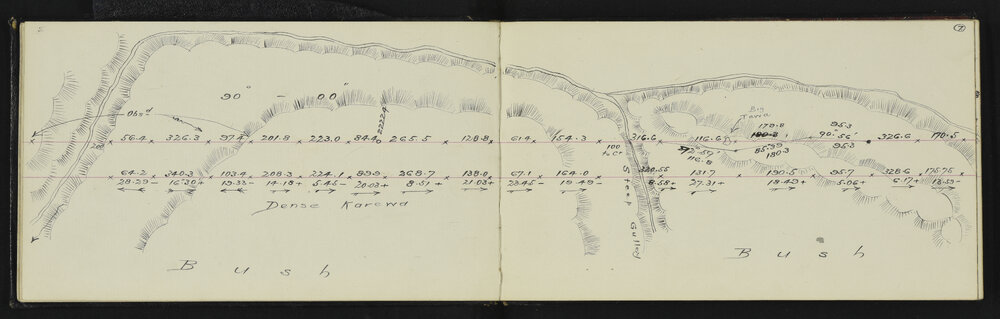 7
90° - 00"
Obsd
Big
Tawa
179.8
180.8
95.3
90° 56'
95.3
56.4 326.3 97.4 201.8 223.0 84.4 265.5 128.8 61.4 154.3 316.6 116.6 326.6 170.5
85.99
180.3
100
to C
116.8
64.2 340.3 103.4 208.3 224.1 89.9 268.7 138.0 67.1 164.0 320.55 131.7 190.5 95.7 328.6 175.75
28.29- 16°30+ 19.33- 14.18+ 5.45- 20.03+ 8.51+ 21.03+ 23.45- 19.49- 8.58+ 27.31+ 18.49+ 5.06+ 6.17+
Dense Karewa
Steep Gulley
Bush
Bush